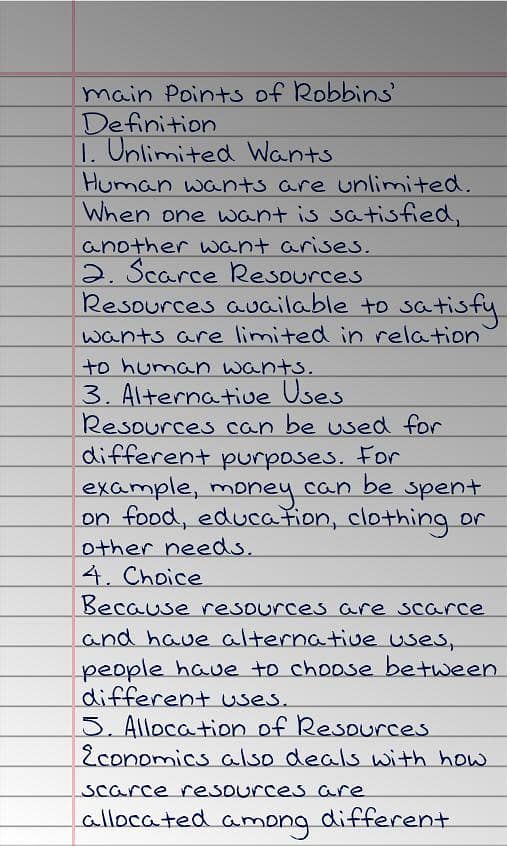 main Points of Robbins'
Definition
1. Unlimited Wants
Human wants are unlimited.
When one want is satisfied,
another want arises.
2. Scarce Resources
Resources available to satisfy
wants are limited in relation
to human wants.
3. Alternative Uses
Resources can be used for
different purposes. For
example, money can be spent
on food, education, clothing or
other needs.
4. Choice
Because resources are scarce
and have alternative uses,
people have to choose between
different uses.
5. Allocation of Resources
Economics also deals with how
scarce resources are
allocated among different